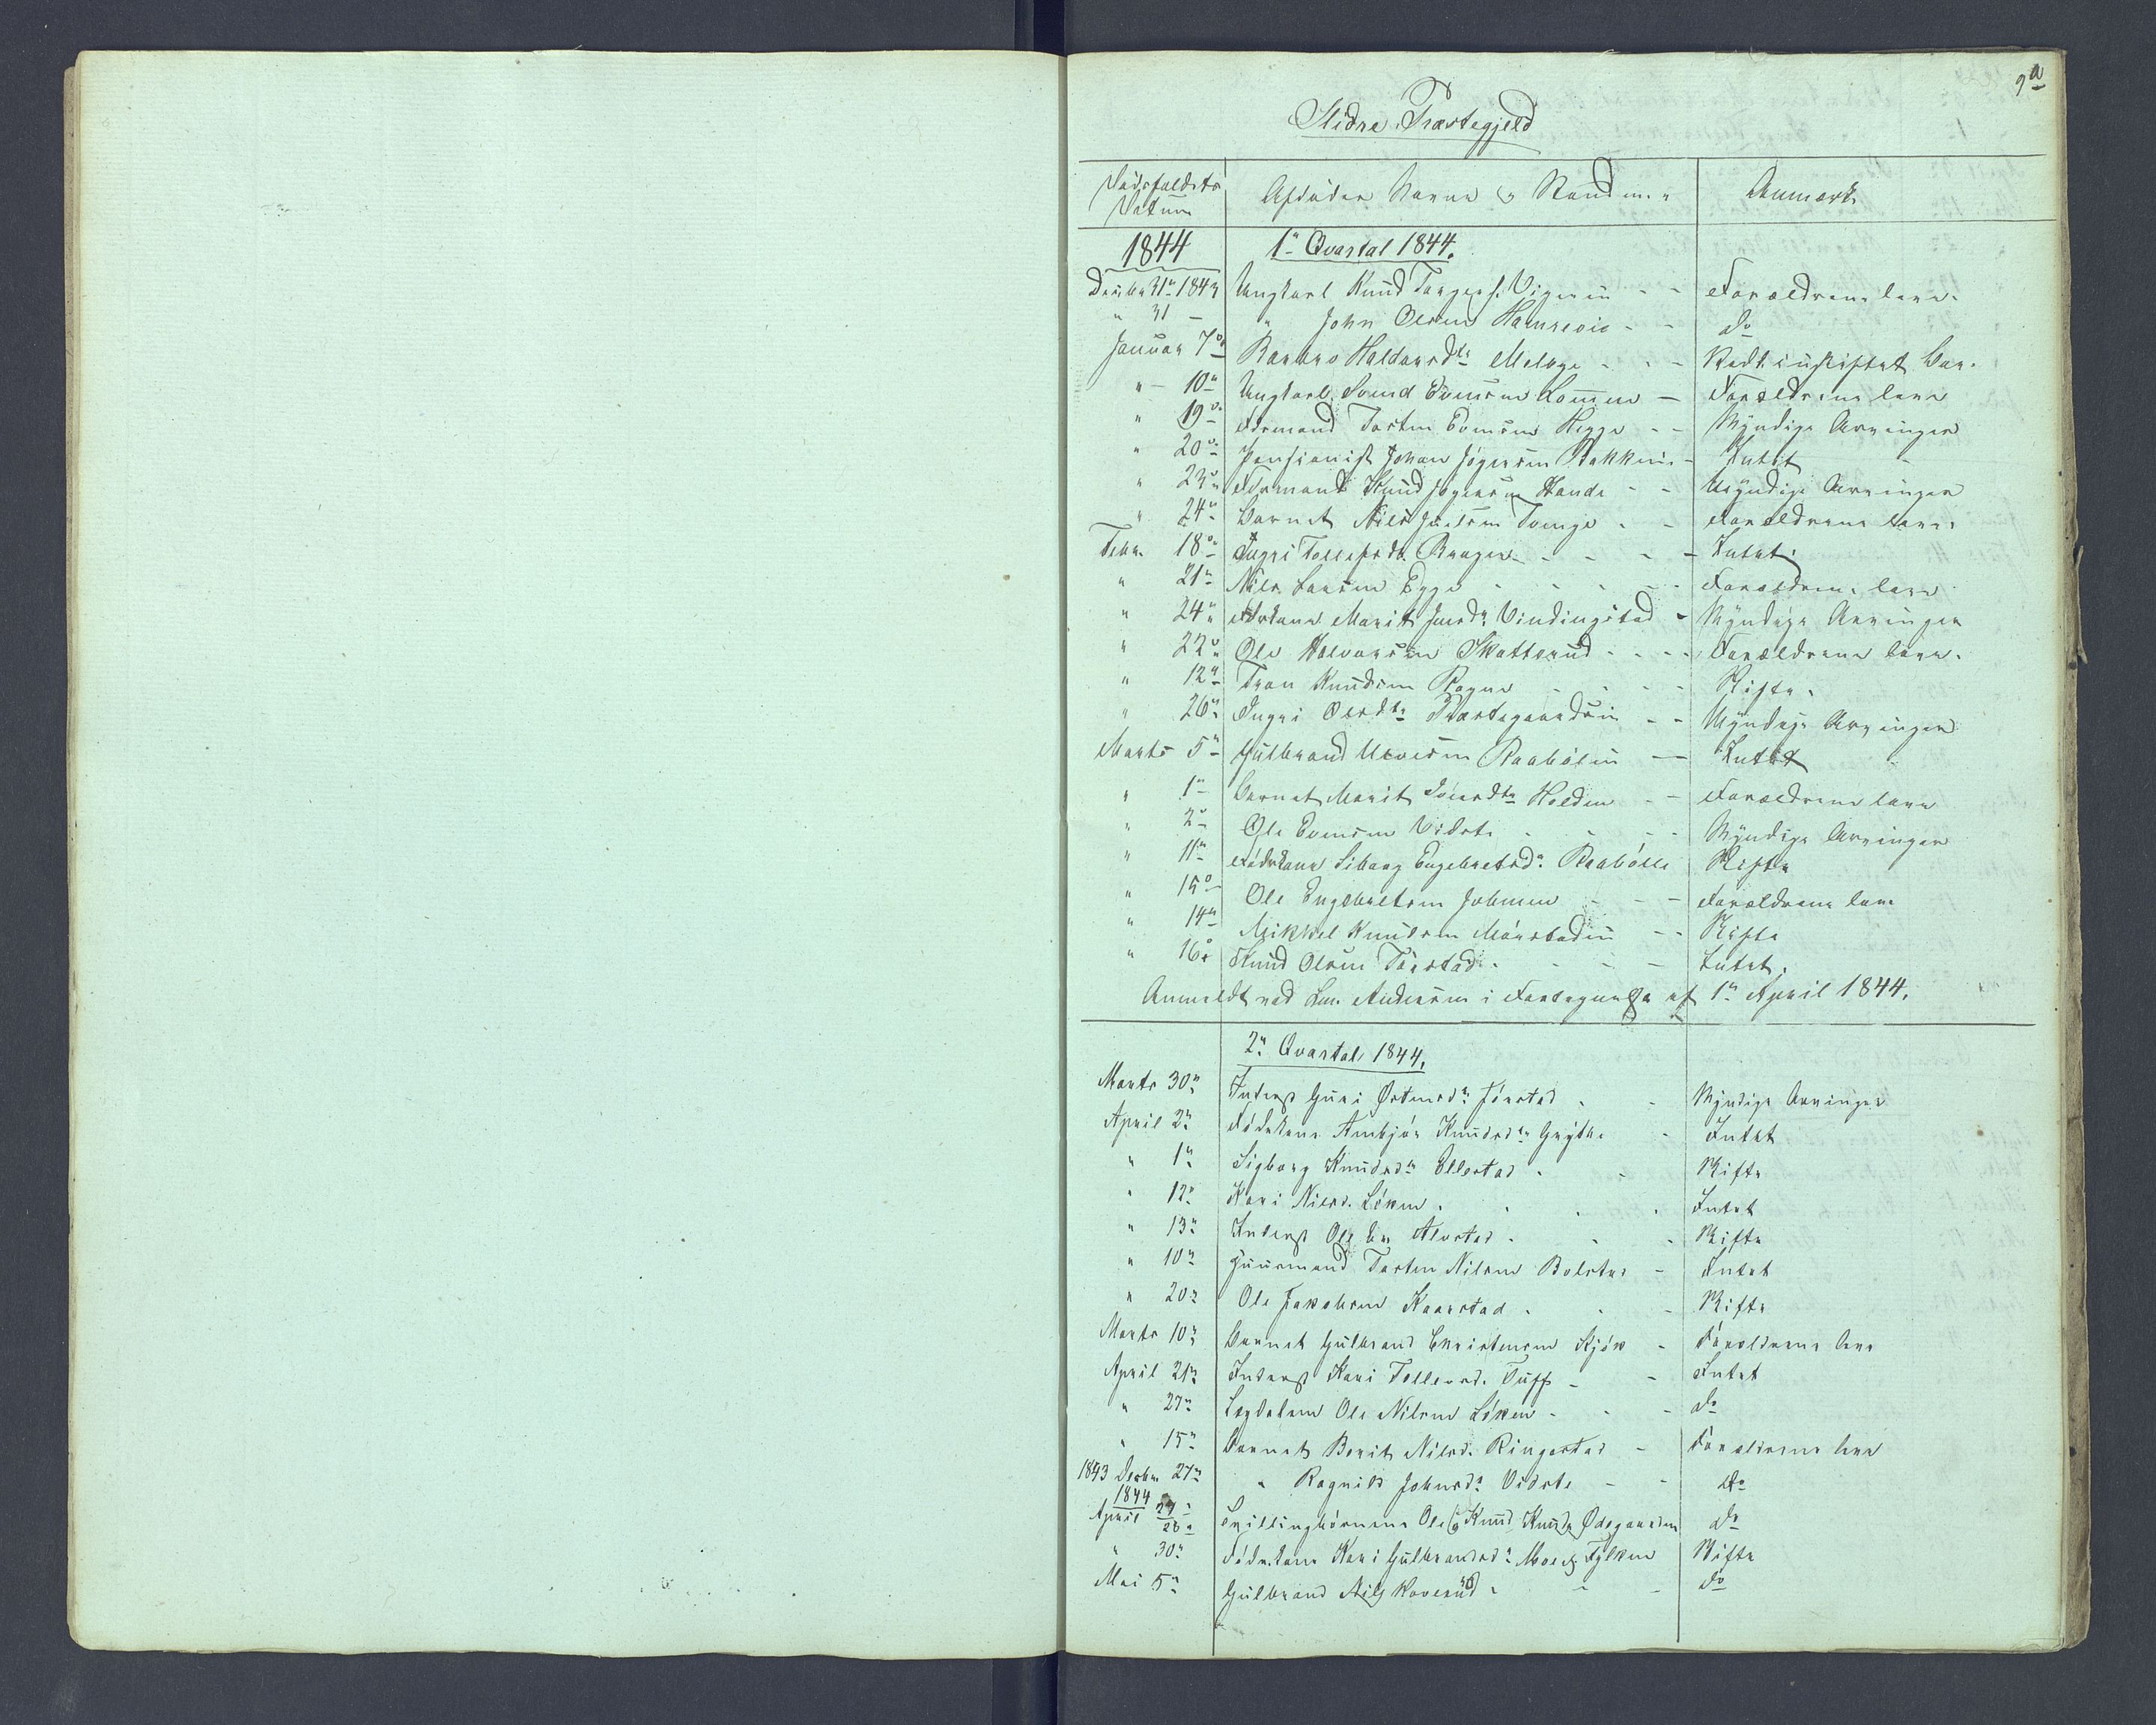 9a
Slidre Præstegjeld
Dødsfaldets Datum | Afdødes Navne og Stand m. | Anmærk
1844 | 1ste Qvartal 1844.
Decbr 31te 1843 | Ungkarl Knud Torgers. Vigerin - - | Forældrene leve.
" 31 - | " John Olsen Hamrevie - - | do
Januar 7de | Barbro Haldorsdtr Melbye - - - | uskiftet Boe.
" - 10de | Ungkarl Svend Svensen Lommen - | Forældrene leve
" 19de | Fdrmand Tosten Evensen Hegge - - | Myndige Arvinger
" 20de | Pensionist Johan Jógersen Bakkene - | Intet
" 23de | Fdrmand Knud Jógersen Hande - - | Myndige Arvinger
" 24de | Barnet Niels Juelsen Tvenge - - | Forældrene leve
Febr. 18de | Ingri Tollefsdtr Brager - - - - | Intet.
" 21de | Niels Larsen Egge - - - - - | Forældrene leve
" 24de | Fdrkone Marit Jensdr Vindingstad - | Myndige Arvinger
" 22de | Ole Halvorsen Skattebud - - - - | Forældrene leve.
" 12te | Tron Knudsen Rogne - - - - | Skifte.
" 26de | Ingri Olsdtr Præstegaardsei - - | Myndige Arvinger
Marts 5te | Gulbrand Ulvesen Raabólin - - | Intet
" 1te | Barnet Marit Iversdtr Holden - - | Forældrene leve
" 2de | Ole Evensen Vidste - - - - | Myndige Arvinger
" 11te | Fódrkone Siborg Engebretsdr Raabólle | Skifte
" 15de | Ole Engebretsen Johmen - - - | Forældrene leve
" 14de | Mikkel Knudsen Mórstadin - - | Skifte
" 16de | Knud Olsen Tórstad - - - - | Intet.
Anmeldt ved Lm. Andersen i Fortegnelse af 1te April 1844.
2det Qvartal 1844.
Marts 30te | Inderst Guri Østensdr Jórstad - - | Myndige Arvinger
April 2den | Fódrkone Ambjór Knudsdtr Grÿthe - | Intet
" 1te | Sigborg Knudsdtr Ellestad - - | Skifte
" 12te | Kari Nilsd. Lóken - - - - | Intet
" 13de | Inderst Ole Alvstad - - - | Skifte
" 10de | Huusmand Tosten Nilsen Bolstad - | Intet
" 20de | Ole Jakobsen Kaarstad - - - | Skifte
Marts 10de | Barnet Gulbrand Christensen Kjók - | Forældrene leve
April 21de | Inderst Kari Tollevsd. Tuff - - | Intet
" 27de | Legdslem Ole Nilsen Lóken - - - | do
" 15de | Barnet Berit Nilsd. Ringestad - | Forældrene leve
1843 Decbr 27de | " Ragnild Johnsdr Vidste - - | do
1844
April 27/28de | Tvillingbórnene Ole og Knud Knuds. Ødegaarden | do
" 30te | Fódrkone Kari Gulbrandsdr Moe og Fylken | Skifte
Mai 5te | Gulbrand Nils Koverud - - - | do